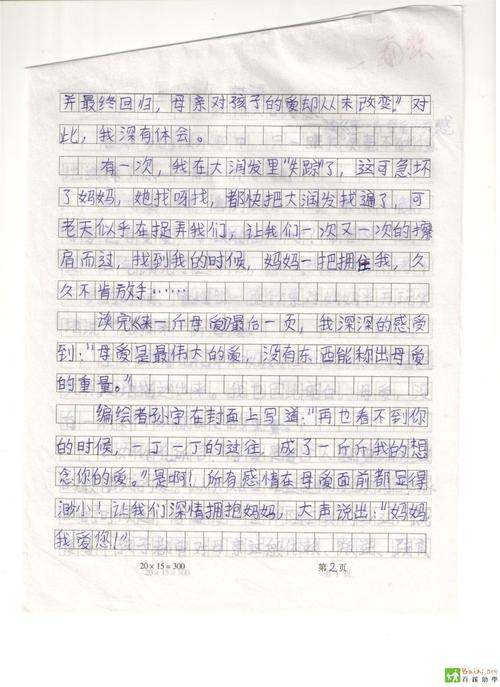 弃最终回归，母亲对孩子的爱却从未改变。”对
此，我深有体会。
有一次，我在大润发里“失踪”了，这可急坏
了妈妈，她找呀找，都快把大润发找遍了，可
老天似乎在捉弄我们，让我们一次又一次的擦
肩而过，找到我的时候，妈妈一把拥住我，久
久不肯放手……
读完《来一斤母爱》最后一页，我深深的感受
到：“母爱是最伟大的爱，没有东西能称出母爱
的重量。”
编绘者孙宇在封面上写道：“再也看不到你
的时候，一丁一丁的过往，成了一斤斤我的想
念你的爱。”是啊！所有感情在母爱面前都显得
渺小！让我们深情拥抱妈妈，大声说出：“妈妈
我爱您！”
20×15=300
第2页
Baixi.org
百蹊助學